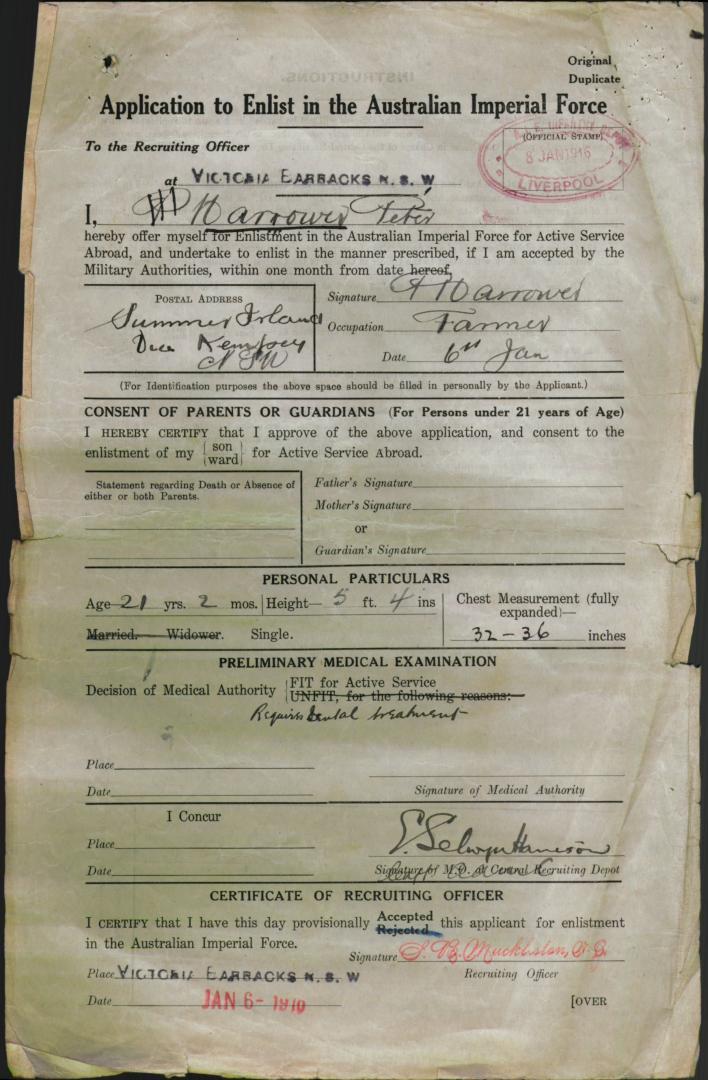 Original
Duplicate
Application to Enlist in the Australian Imperial Force
To the Recruiting Officer
(OFFICIAL STAMP)
8 JAN 1916
LIVERPOOL
at VICTORIA BARRACKS N. S. W
I, Harrower Peter
hereby offer myself for Enlistment in the Australian Imperial Force for Active Service
Abroad, and undertake to enlist in the manner prescribed, if I am accepted by the
Military Authorities, within one month from date hereof,
POSTAL ADDRESS
Summer Island
Via Kempsey
NSW
Signature P Harrower
Occupation Farmer
Date 6th Jan
(For Identification purposes the above space should be filled in personally by the Applicant.)
CONSENT OF PARENTS OR GUARDIANS (For Persons under 21 years of Age)
I HEREBY CERTIFY that I approve of the above application, and consent to the
enlistment of my (son / ward) for Active Service Abroad.
Statement regarding Death or Absence of
either or both Parents.
Father's Signature
Mother's Signature
or
Guardian's Signature
PERSONAL PARTICULARS
Age 21 yrs. 2 mos. Height— 5 ft. 4 ins
Chest Measurement (fully
expanded)—
32-36 inches
Married. Widower. Single.
PRELIMINARY MEDICAL EXAMINATION
Decision of Medical Authority
FIT for Active Service
UNFIT, for the following reasons:
Requires dental treatment
Place
Date
Signature of Medical Authority
I Concur
Place
Date
Signature of M.O. at Central Recruiting Depot
CERTIFICATE OF RECRUITING OFFICER
I CERTIFY that I have this day provisionally Accepted Rejected this applicant for enlistment
in the Australian Imperial Force.
Signature
Place VICTORIA BARRACKS N. S. W
Recruiting Officer
Date JAN 6- 1916
[OVER